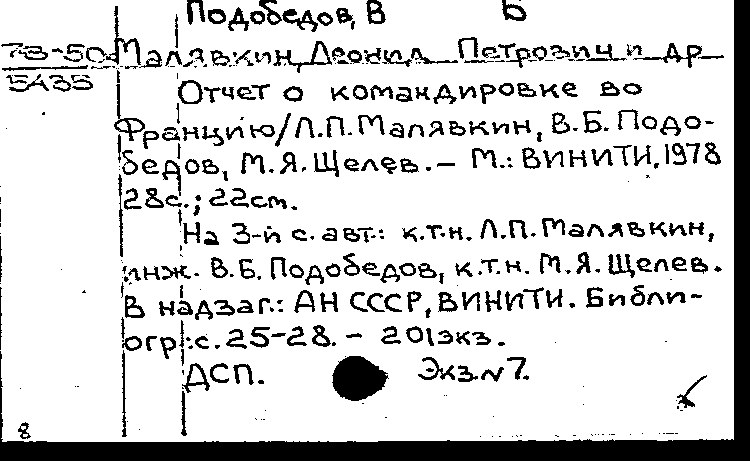 Подобедов, В Б
78-50
5435
Малявкин, Леонид Петрович и др
Отчет о командировке во
Францию/Л.П.Малявкин, В.Б.Подо-
бедов, М.Я.Щелев.– М.: ВИНИТИ,1978
28с.; 22см.
На 3-й с. авт.: к.т.н. Л.П.Малявкин,
инж. В.Б.Подобедов, к.т.н. М.Я.Щелев.
В надзаг.: АН СССР, ВИНИТИ. Библи-
огр.:с. 25-28. – 201экз.
ДСП. Экз.N7.
8